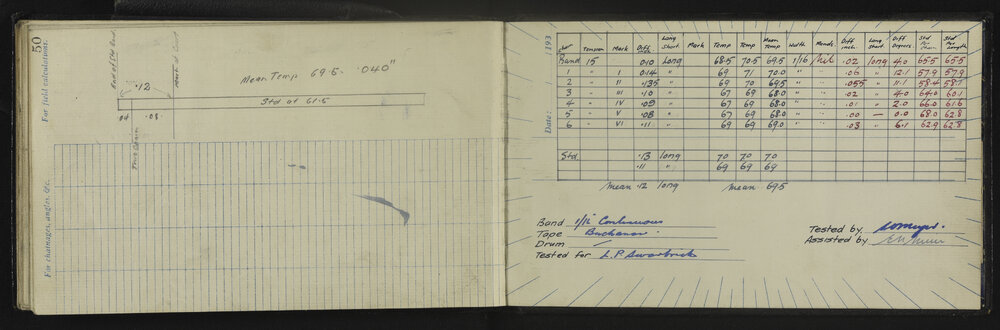 50
For field calculations.
End of Std Band
.12
Mark on Band
Mean Temp 69.5. .040"
Std at 61.5
.04 .08
True Chain
For chainages, angles, &c.
Date: 193
Tension Mark Diff Inch. Long Short Mark Temp Temp Mean Temp Width Mends Diff Inch. Long Short Diff Degrees Std Per Chain Std Per Length
Band 15 .010 Long 68.5 70.5 69.5 1/16 Nil .02 long 4.0 65.5 65.5
1 " I 0.14 " 69 71 70.0 " " .06 " 12.1 57.9 57.9
2 " II .135 " 69 70 69.5 " " .055 " 11.1 58.4 58.1
3 " III .10 " 67 69 68.0 " " .02 " 4.0 64.0 60.1
4 " IV .09 " 67 69 68.0 " " .01 " 2.0 66.0 61.6
5 " V .08 " 67 69 68.0 " " .00 — 0.0 68.0 62.8
6 " VI .11 " 69 69 69.0 " " .03 " 6.1 62.9 62.8
Std .13 long 70 70 70
.11 " 69 69 69
Mean .12 long Mean 69.5
Band 1/16 Continuous
Tape Buchanan.
Drum —
Tested for L.P. Swarbrick
Tested by
Assisted by